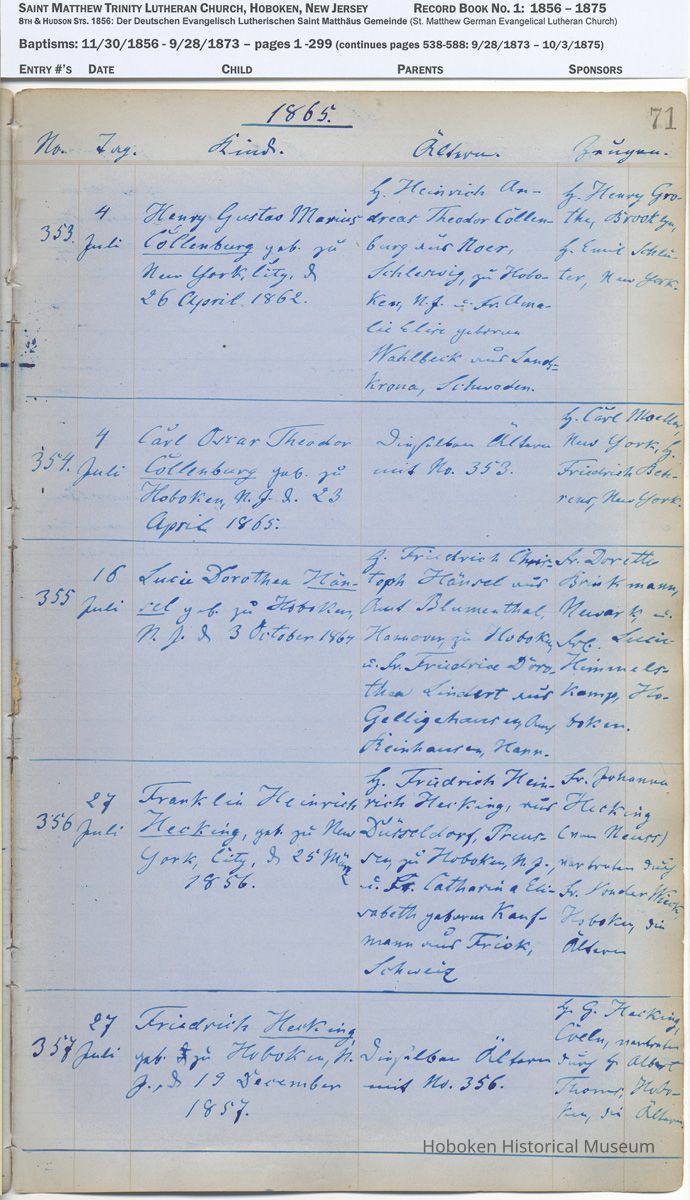 SAINT MATTHEW TRINITY LUTHERAN CHURCH, HOBOKEN, NEW JERSEY RECORD BOOK NO. 1: 1856 – 1875
8TH & HUDSON STS. 1856: Der Deutschen Evangelisch Lutherischen Saint Matthäus Gemeinde (St. Matthew German Evangelical Lutheran Church)
Baptisms: 11/30/1856 - 9/28/1873 – pages 1 -299 (continues pages 538-588: 9/28/1873 – 10/3/1875)
ENTRY #'S DATE CHILD PARENTS SPONSORS
1865.
71
No. Tag. Kind. Ältern. Zeugen.
353.
4
Juli
Henry Gustav Marius
Cöllenburg geb. zu
New York, City, d
26 April 1862.
H. Heinrich An-
dreas Theodor Cöllen-
burg aus Noer,
Schleswig, zu Hobo-
ken, N. J. u. Fr. Ama-
lie Elise geboren
Wahlbeck aus Lands-
krona, Schweden.
H. Henry Gro-
the, Brooklyn,
H. Emil Schlü-
ter, New York.
354.
4
Juli
Carl Oscar Theodor
Cöllenburg geb. zu
Hoboken, N. J. d. 23
April 1865.
Dieselben Ältern
mit No. 353.
H. Carl Moeller,
New York, H.
Friedrich Beh-
rens, New York.
355
16
Juli
Lucie Dorothea Hän-
sel geb. zu Hoboken,
N. J. d 3 October 1864
H. Friedrich Chris-
toph Hänsel aus
Amt Blumenthal,
Hannover, zu Hoboken,
u. Fr. Friedrice Doro-
thea Lindert aus
Gelligehausen, Amt
Reinhausen, Hann.
Fr. Dorette
Brinkmann,
Newark, u.
Frl. Lucie
Himmels-
kamp, Ho-
boken.
356
27
Juli
Franklin Heinrich
Hecking, geb. zu New
York, City, d 25 März
1856.
H. Friedrich Hein-
rich Hecking, aus
Düsseldorf, Preus-
sen, zu Hoboken, N. J.,
u. Fr. Catharina Eli-
sabeth geboren Kauf-
mann aus Frick,
Schweiz
Fr. Johanna
Hecking
(von Neuss)
vertreten durch
Fr. Vonder
Hoboken, die
Ältern
357
27
Juli
Friedrich Hecking
geb. zu Hoboken, N.
J., d 19 December
1857.
Dieselben Ältern
mit No. 356.
H. G. Hecking,
Cöln, vertreten
durch H. Albert
Thoms, Hobo-
ken, die Ältern
Hoboken Historical Museum